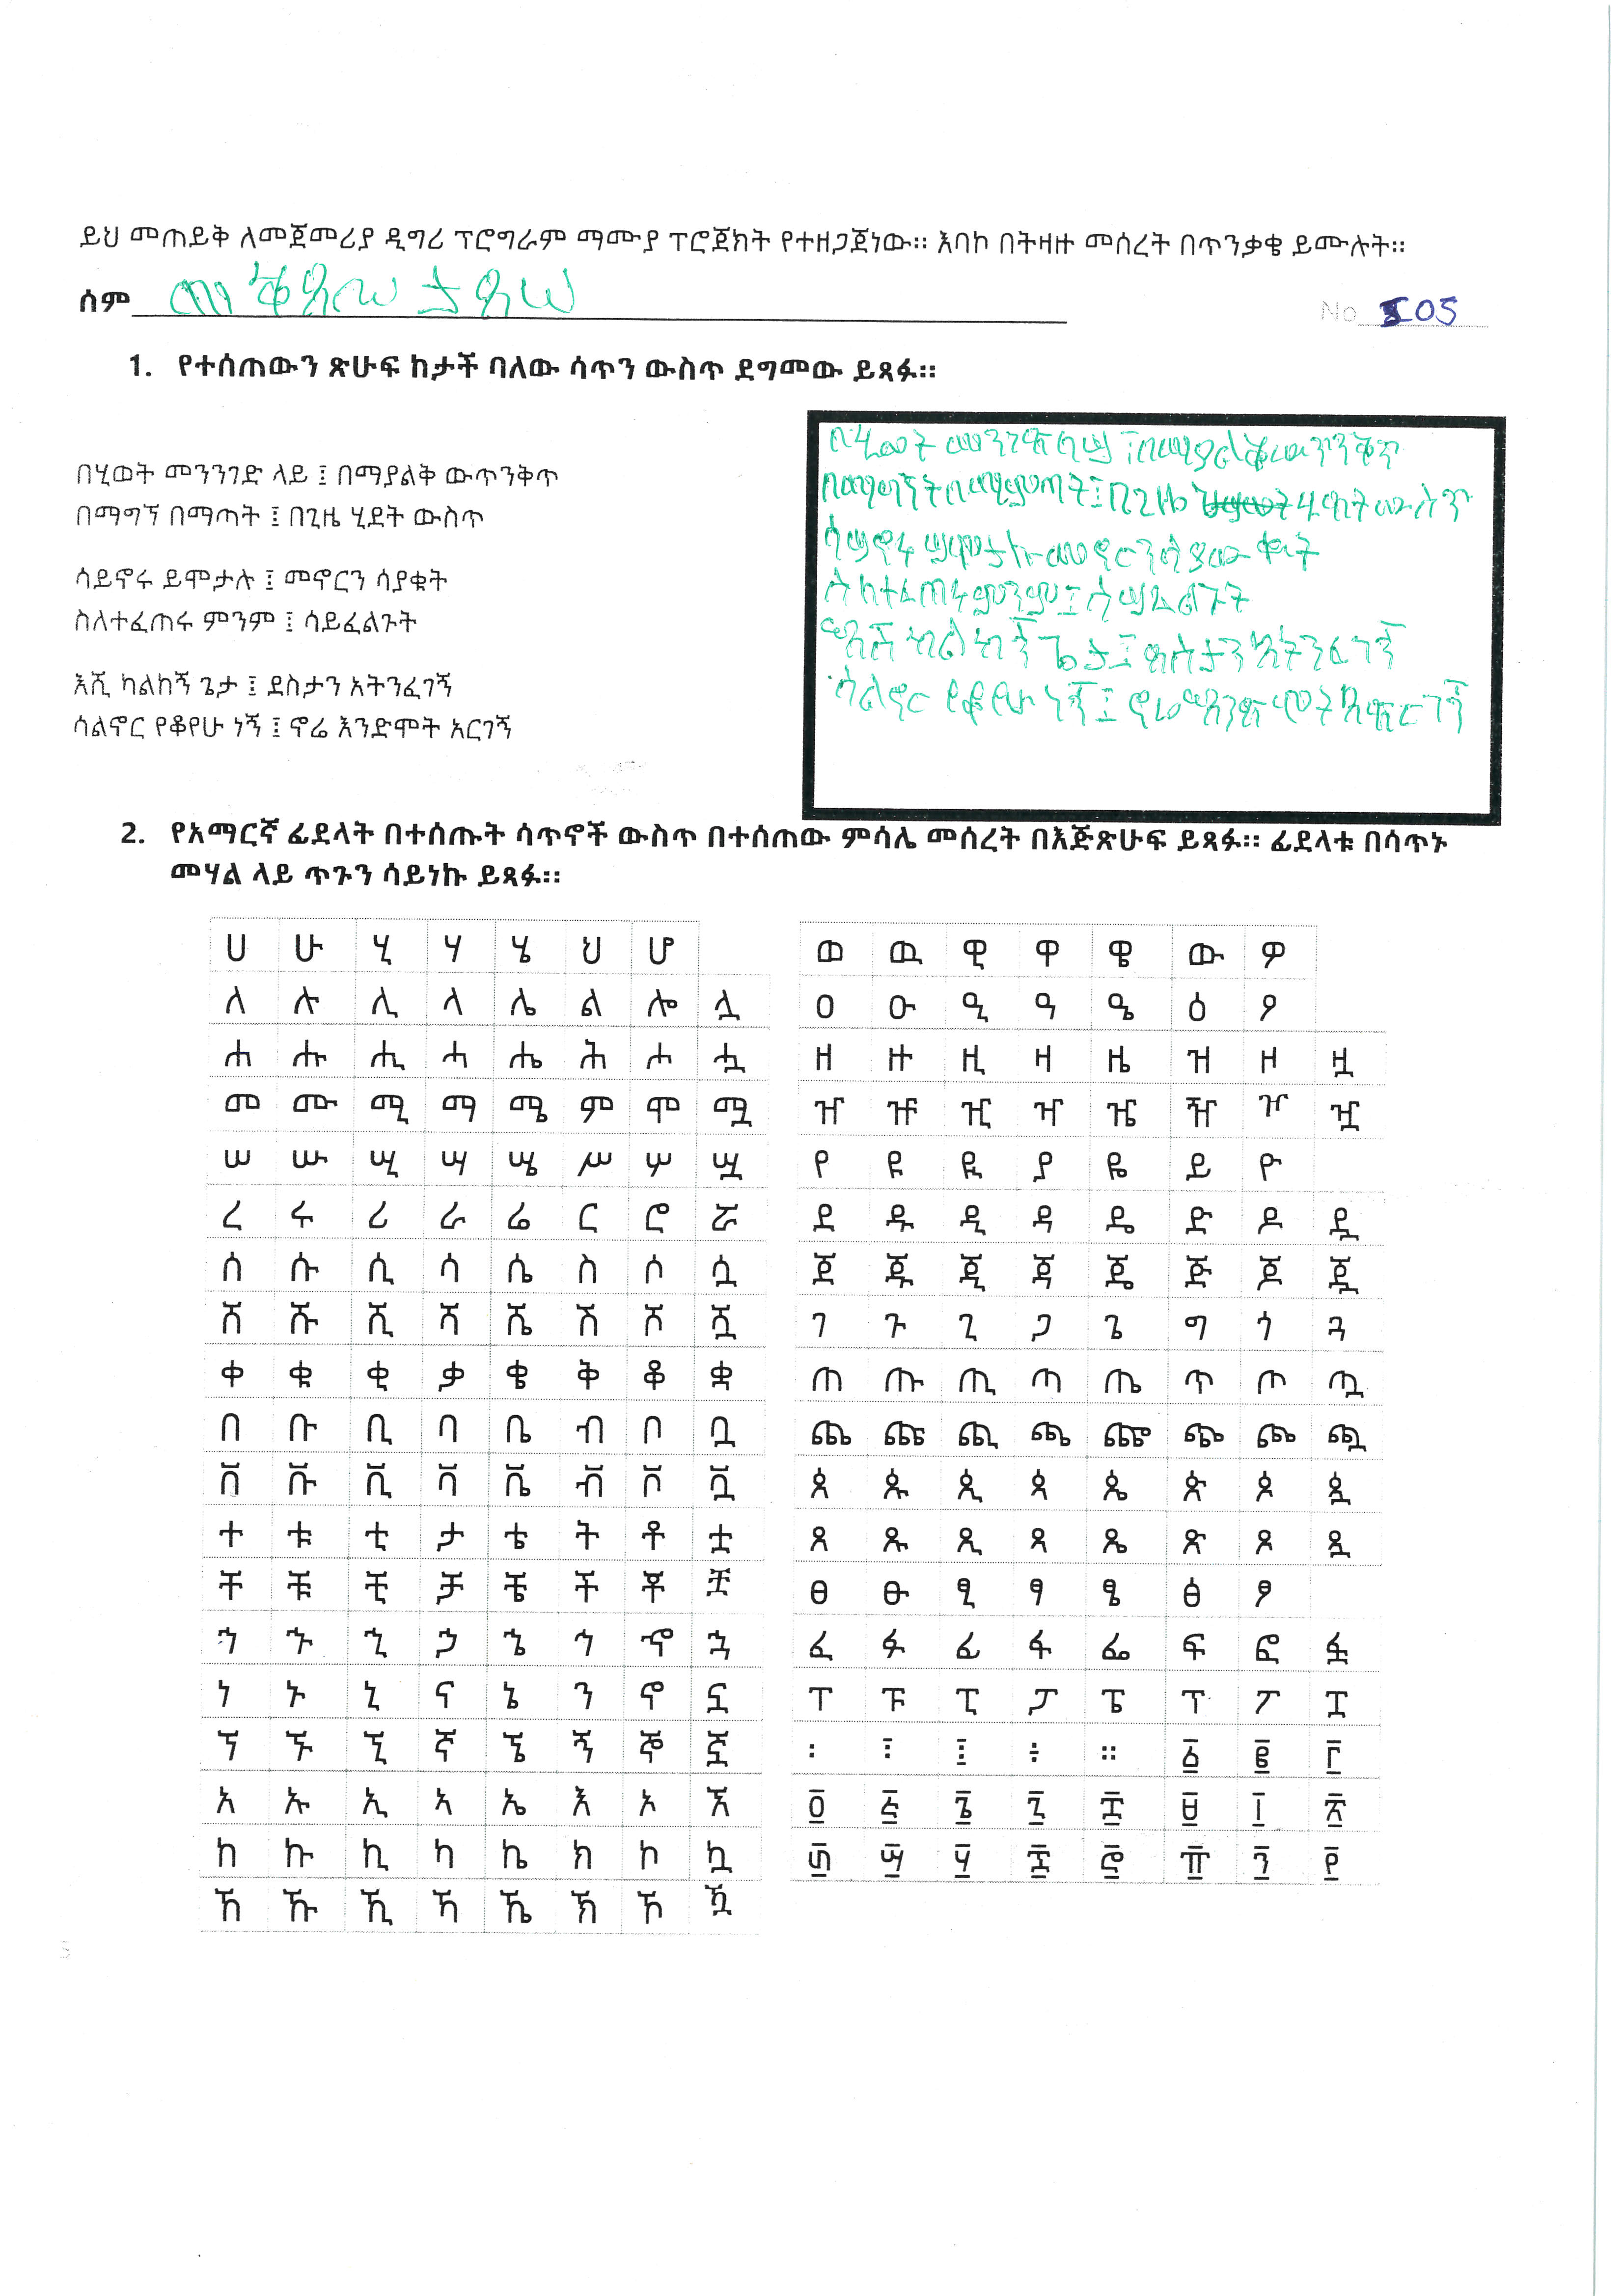 ይህ መጠይቅ ለመጀመሪያ ዲግሪ ፕሮግራም ማሙያ ፕሮጀክት የተዘጋጀነው። እባኮ በትዛዙ መሰረት በጥንቃቄ ይሙሉት።
ሰም
No 105
1. የተሰጠውን ጽሁፍ ከታች ባለው ሳጥን ውስጥ ደግመው ይጻፉ።
በሂወት መንንገድ ላይ ፤ በማያልቅ ውጥንቅጥ
በማግኘ በማጣት ፤ በጊዜ ሂደት ውስጥ
ሳይኖሩ ይሞታሉ ፤ መኖርን ሳያቁት
ስለተፈጠሩ ምንም ፤ ሳይፈልጉት
እሺ ካልከኝ ጌታ ፤ ደስታን አትንፈገኝ
ሳልኖር የቆየሁ ነኝ ፤ ኖሬ እንድሞት አርገኝ
በሂወት
ሳልኖር የቆየሁ ነኝ ፤ ኖሬ እንድሞት
2. የአማርኛ ፊደላት በተሰጡት ሳጥኖች ውስጥ በተሰጠው ምሳሌ መሰረት በእጅጽሁፍ ይጻፉ። ፊደላቱ በሳጥኑ
መሃል ላይ ጥጉን ሳይነኩ ይጻፉ።
ሀ ሁ ሂ ሃ ሄ ህ ሆ
ለ ሉ ሊ ላ ሌ ል ሎ ሏ
ሐ ሑ ሒ ሓ ሔ ሕ ሖ ሗ
መ ሙ ሚ ማ ሜ ም ሞ ሟ
ሠ ሡ ሢ ሣ ሤ ሥ ሦ ሧ
ረ ሩ ሪ ራ ሬ ር ሮ ሯ
ሰ ሱ ሲ ሳ ሴ ስ ሶ ሷ
ሸ ሹ ሺ ሻ ሼ ሽ ሾ ሿ
ቀ ቁ ቂ ቃ ቄ ቅ ቆ ቋ
በ ቡ ቢ ባ ቤ ብ ቦ ቧ
ቨ ቩ ቪ ቫ ቬ ቭ ቮ ቯ
ተ ቱ ቲ ታ ቴ ት ቶ ቷ
ቸ ቹ ቺ ቻ ቼ ች ቾ ቿ
ኀ ኁ ኂ ኃ ኄ ኅ ኆ ኋ
ነ ኑ ኒ ና ኔ ን ኖ ኗ
ኘ ኙ ኚ ኛ ኜ ኝ ኞ ኟ
አ ኡ ኢ ኣ ኤ እ ኦ ኧ
ከ ኩ ኪ ካ ኬ ክ ኮ ኳ
ኸ ኹ ኺ ኻ ኼ ኽ ኾ ዃ
ወ ዉ ዊ ዋ ዌ ው ዎ
ዐ ዑ ዒ ዓ ዔ ዕ ዖ
ዘ ዙ ዚ ዛ ዜ ዝ ዞ ዟ
ዠ ዡ ዢ ዣ ዤ ዥ ዦ ዧ
የ ዩ ዪ ያ ዬ ይ ዮ
ደ ዱ ዲ ዳ ዴ ድ ዶ ዷ
ጀ ጁ ጂ ጃ ጄ ጅ ጆ ጇ
ገ ጉ ጊ ጋ ጌ ግ ጎ ጓ
ጠ ጡ ጢ ጣ ጤ ጥ ጦ ጧ
ጨ ጩ ጪ ጫ ጬ ጭ ጮ ጯ
ጰ ጱ ጲ ጳ ጴ ጵ ጶ ጷ
ጸ ጹ ጺ ጻ ጼ ጽ ጾ ጿ
ፀ ፁ ፂ ፃ ፄ ፅ ፆ
ፈ ፉ ፊ ፋ ፌ ፍ ፎ ፏ
ፐ ፑ ፒ ፓ ፔ ፕ ፖ ፗ
፡ ፣ ፤ ፥ ። ፩ ፪ ፫
፬ ፭ ፮ ፯ ፰ ፱ ፲ ፳
፴ ፵ ፶ ፷ ፸ ፹ ፺ ፻